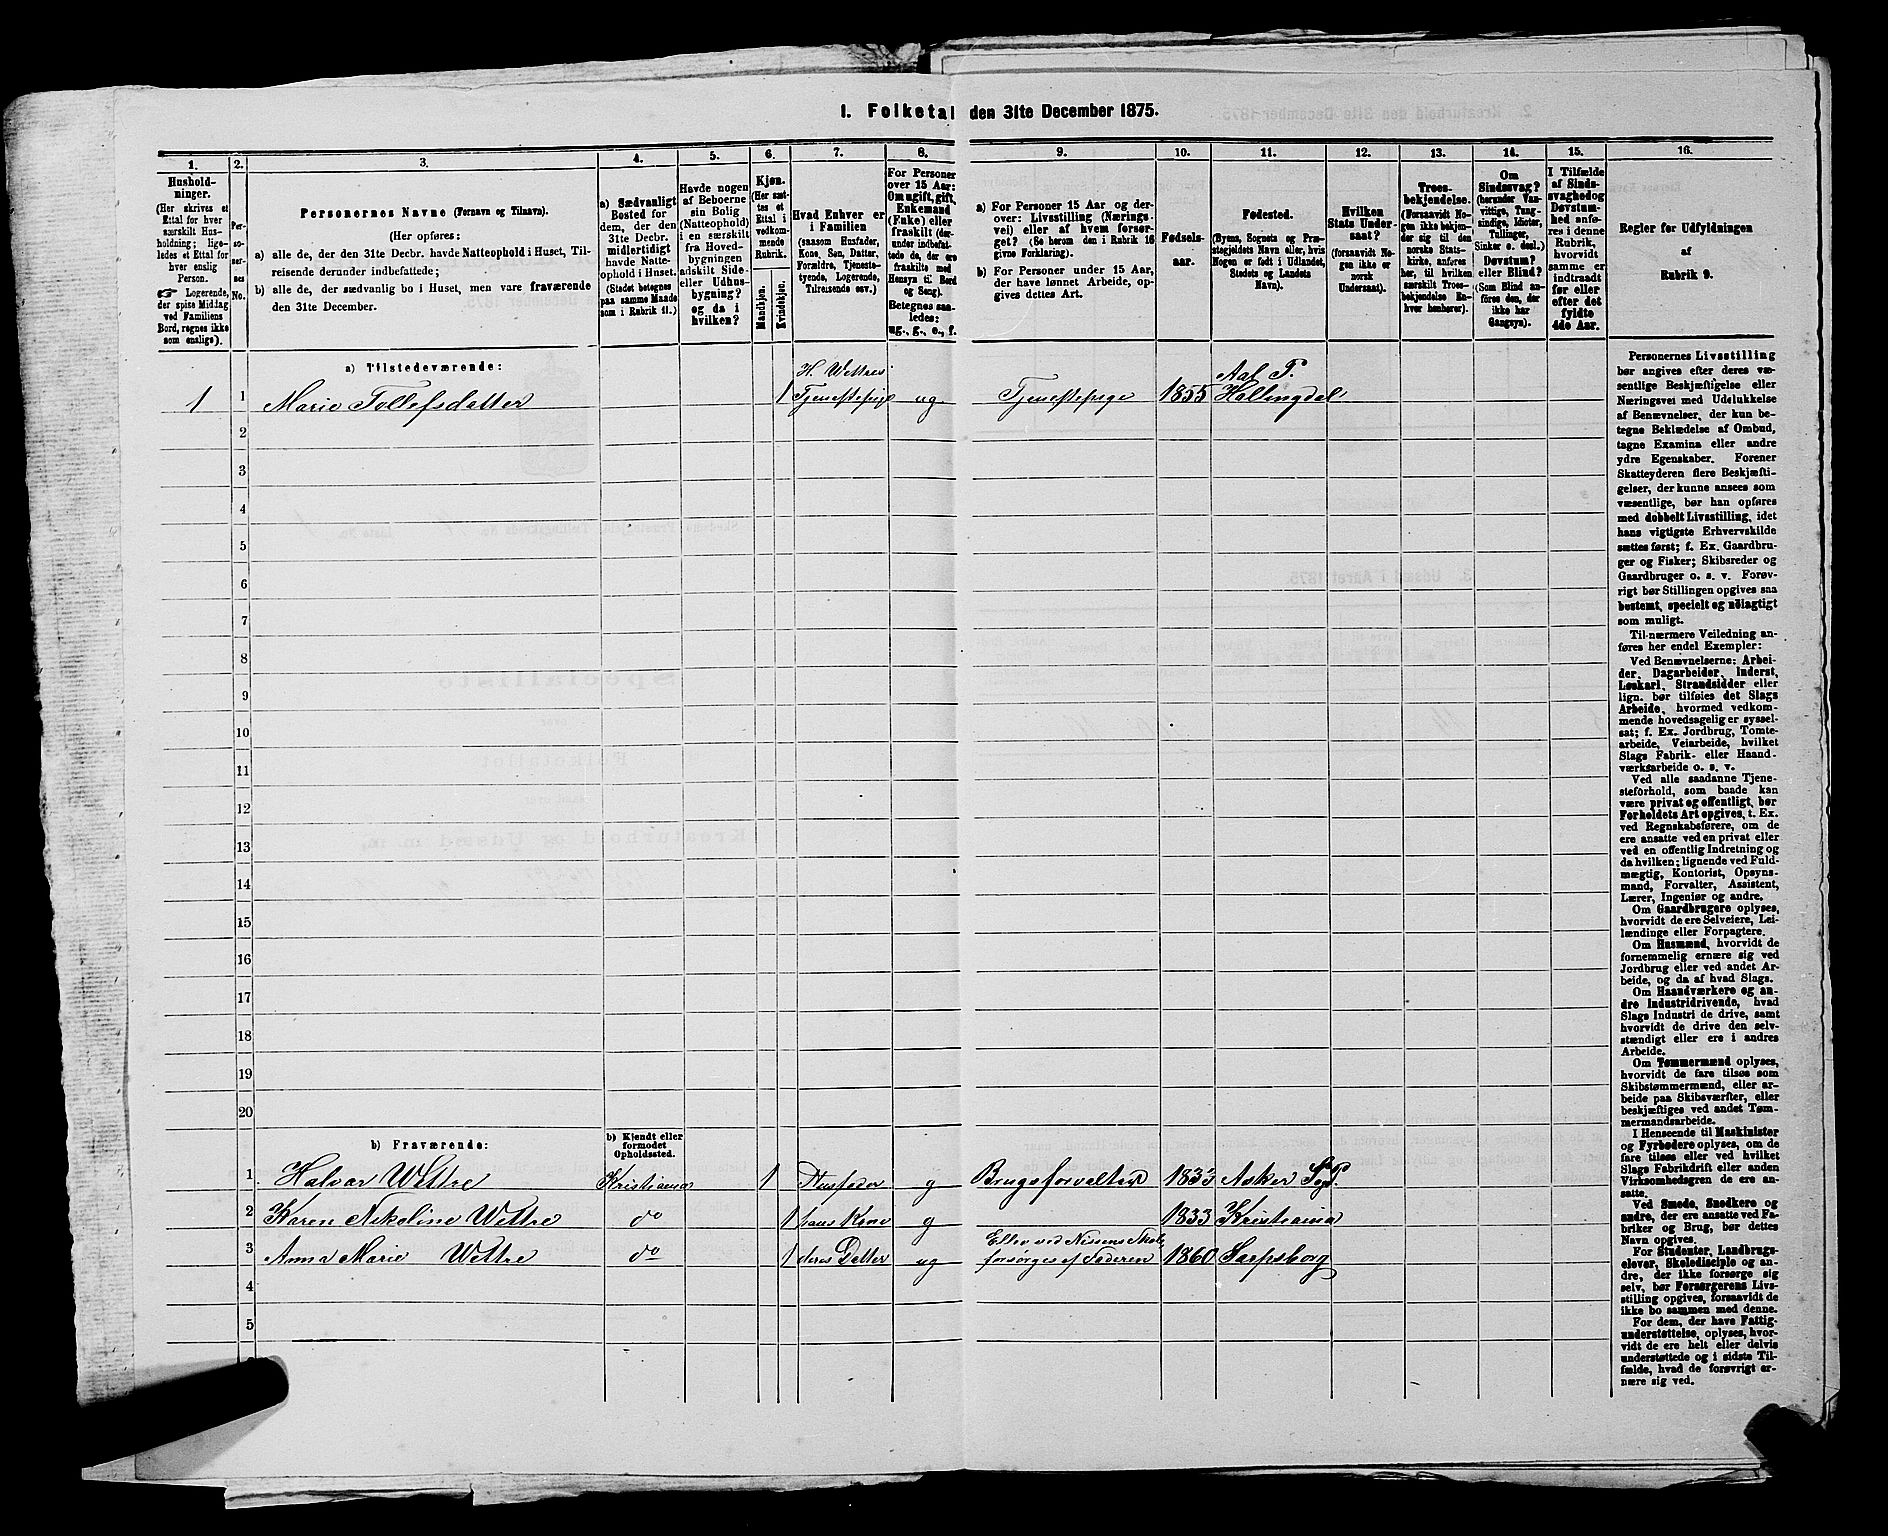 1. Folketal den 31te December 1875.
1. 2. 3. 4. 5. 6. 7. 8. 9. 10. 11. 12. 13. 14. 15. 16.
Hushold-
ninger.
(Her skrives et
Ettal for hver
særskilt Hus-
holdning; lige-
ledes et Ettal for
hver enslig
Person.
☞ Logerende,
der spise Middag
ved Familiens
Bord, regnes ikke
som enslige).
Per-
so-
ner-
nes
No.
Personernes Navne (Fornavn og Tilnavn).
(Her opføres:
a) alle de, der den 31te Decbr. havde Natteophold i Huset, Til-
reisende derunder indbefattede;
b) alle de, der sædvanlig bo i Huset, men vare fraværende
den 31te December.
a) Sædvanligt
Bosted for
dem, der den
31te Decbr.
midlertidigt
havde Natte-
ophold i Huset.
(Stedet betegnes
paa samme Maade
som i Rubrik 11.)
Havde nogen
af Beboerne
sin Bolig
(Natteophold)
i en særskilt
fra Hoved-
bygningen
adskilt Side-
eller Udhus-
bygning?
og da i
hvilken?
Kjøn.
(Her sæt-
tes et
Ettal i
vedkom-
mende
Rubrik.
Mandkjøn.
Kvindekjøn.
Hvad Enhver er
i Familien
(saasom Husfader,
Kone, Søn, Datter,
Forældre, Tjeneste-
tyende, Logerende,
Tilreisende osv.)
For Personer
over 15 Aar:
Om ugift, gift,
Enkemand
(Enke) eller
fraskilt (der-
under indbefat-
tede de, der ere
fraskilte med
Hensyn til Bord
og Seng).
Betegnes saa-
ledes:
ug., g., e., f.
a) For Personer 15 Aar og der-
over: Livsstilling (Nærings-
vei) eller af hvem forsør-
get? (Se herom den i Rubrik 16
givne Forklaring).
b) For Personer under 15 Aar,
der have lønnet Arbeide, op-
gives dettes Art.
Fødsels-
aar.
Fødested.
(Byens, Sognets og Præ-
stegjeldets Navn eller, hvis
Nogen er født i Udlandet,
Stedets og Landets
Navn).
Hvilken
Stats Under-
saat?
(forsaavidt No-
gen ikke er
norsk
Undersaat).
Troes-
bekjendelse.
(Forsaavidt No-
gen ikke bekjen-
der sig til den
norske Stats-
kirke, anføres
her, til hvilken
særskilt Troes-
bekjendelse En-
hver henhører).
Om
Sindssvag?
(herunder Van-
vittige, Tung-
sindige, Idioter,
Tullinger,
Sinker o. desl.)
Døvstum?
eller Blind?
(Som Blind an-
føres den, der
ikke har
Gangsyn).
I Tilfælde
af Sinds-
svaghed og
Døvstum-
hed anfø-
res i denne
Rubrik,
hvorvidt
samme er
indtraadt
før eller
efter det
fyldte
4de Aar.
Regler for Udfyldningen
af
Rubrik 9.
a) Tilstedeværende:
1 1 Marie Tollefsdatter 1 H. Wettres Tjenestepige ug Tjenestepige 1855 Aal P. Hallingdal
2
3
4
5
6
7
8
9
10
11
12
13
14
15
16
17
18
19
20
b) Fraværende:
b) Kjendt eller
formodet
Opholdssted.
1 Halvor Wettre Kristiania 1 Husfader g Brugsforvalter 1833 Asker S. og P.
2 Karen Nikoline Wettre do 1 hans Kone g 1833 Kristiania
3 Anna Marie Wettre do 1 deres Datter ug Elev ved Nissens Skole forsørges af Faderen 1860 Sarpsborg
4
5
Personernes Livsstilling
bør angives efter deres væ-
sentlige Beskjæftigelse eller
Næringsvei med Udelukkelse
af Benævnelser, der kun be-
tegne Beklædelse af Ombud,
tagne Examina eller andre
ydre Egenskaber. Forener
Skatteyderen flere Beskjæfti-
gelser, der kunne ansees som
væsentlige, bør han opføres
med dobbelt Livsstilling, idet
hans vigtigste Erhvervskilde
sættes først; f. Ex. Gaardbru-
ger og Fisker; Skibsreder og
Gaardbruger o. s. v. Forøv-
rigt bør Stillingen opgives saa
bestemt, specielt og nöiagtigt
som muligt.
Til nærmere Veiledning an-
føres her endel Exempler:
Ved Benævnelserne: Arbei-
der, Dagarbeider, Inderst,
Løskarl, Strandsidder eller
lign. bør tilføies det Slags
Arbeide, hvormed vedkom-
mende hovedsagelig er syssel-
sat; f. Ex. Jordbrug, Tomte-
arbeide, Veiarbeide, hvilket
Slags Fabrik- eller Haand-
værksarbeide o. s. v.
Ved alle saadanne Tjene-
steforhold, som baade kan
være privat og offentligt, bør
Forholdets Art opgives, t. Ex.
ved Regnskabsførere, om de
ere ansatte ved en privat eller
ved en offentlig Indretning og
da hvilken; lignende ved Fuld-
mægtig, Kontorist, Opsyns-
mand, Forvalter, Assistent,
Lærer, Ingeniør og andre.
Om Gaardbrugere oplyses,
hvorvidt de ere Selveiere, Lei-
lændinge eller Forpagtere.
Om Husmænd, hvorvidt de
fornemmelig ernære sig ved
Jordbrug eller ved andet Ar-
beide, og da af hvad Slags.
Om Haandværkere og an-
dre Industridrivende, hvad
Slags Industri de drive, samt
hvorvidt de drive den selv-
stændigt eller ere i andres
Arbeide.
Om Tømmermænd oplyses,
hvorvidt de fare tilsøs som
Skibstømmermænd, eller ar-
beide paa Skibsværfter, eller
beskjæftiges ved andet Tøm-
mermandsarbeide.
I Henseende til Maskinister
og Fyrbødere oplyses, om de
fare tilsøs eller ved hvilket
Slags Fabrikdrift eller anden
Virksomhedsgren de ere an-
satte.
Ved Smede, Snedkere og
andre, der ere ansatte ved Fa-
briker og Brug, bør dettes
Navn opgives.
For Studenter, Landbrugs-
elever, Skoledisciple og an-
dre, der ikke forsørge sig
selv, bør Forsørgerens Livs-
stilling opgives, forsaavidt de
ikke bo sammen med denne.
For dem, der have Fattig-
understøttelse, oplyses, hvor-
vidt de ere helt eller delvis
understøttede og i sidste Til-
fælde, hvad de forøvrigt er-
nære sig ved.